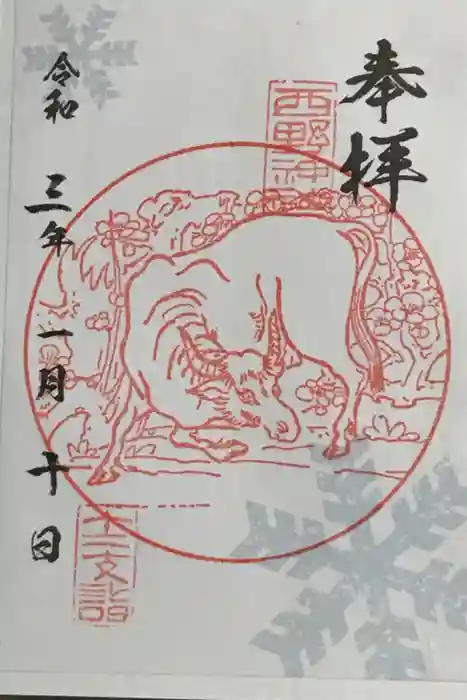 奉拝
西野神
令和三年一月十日
十二支詣